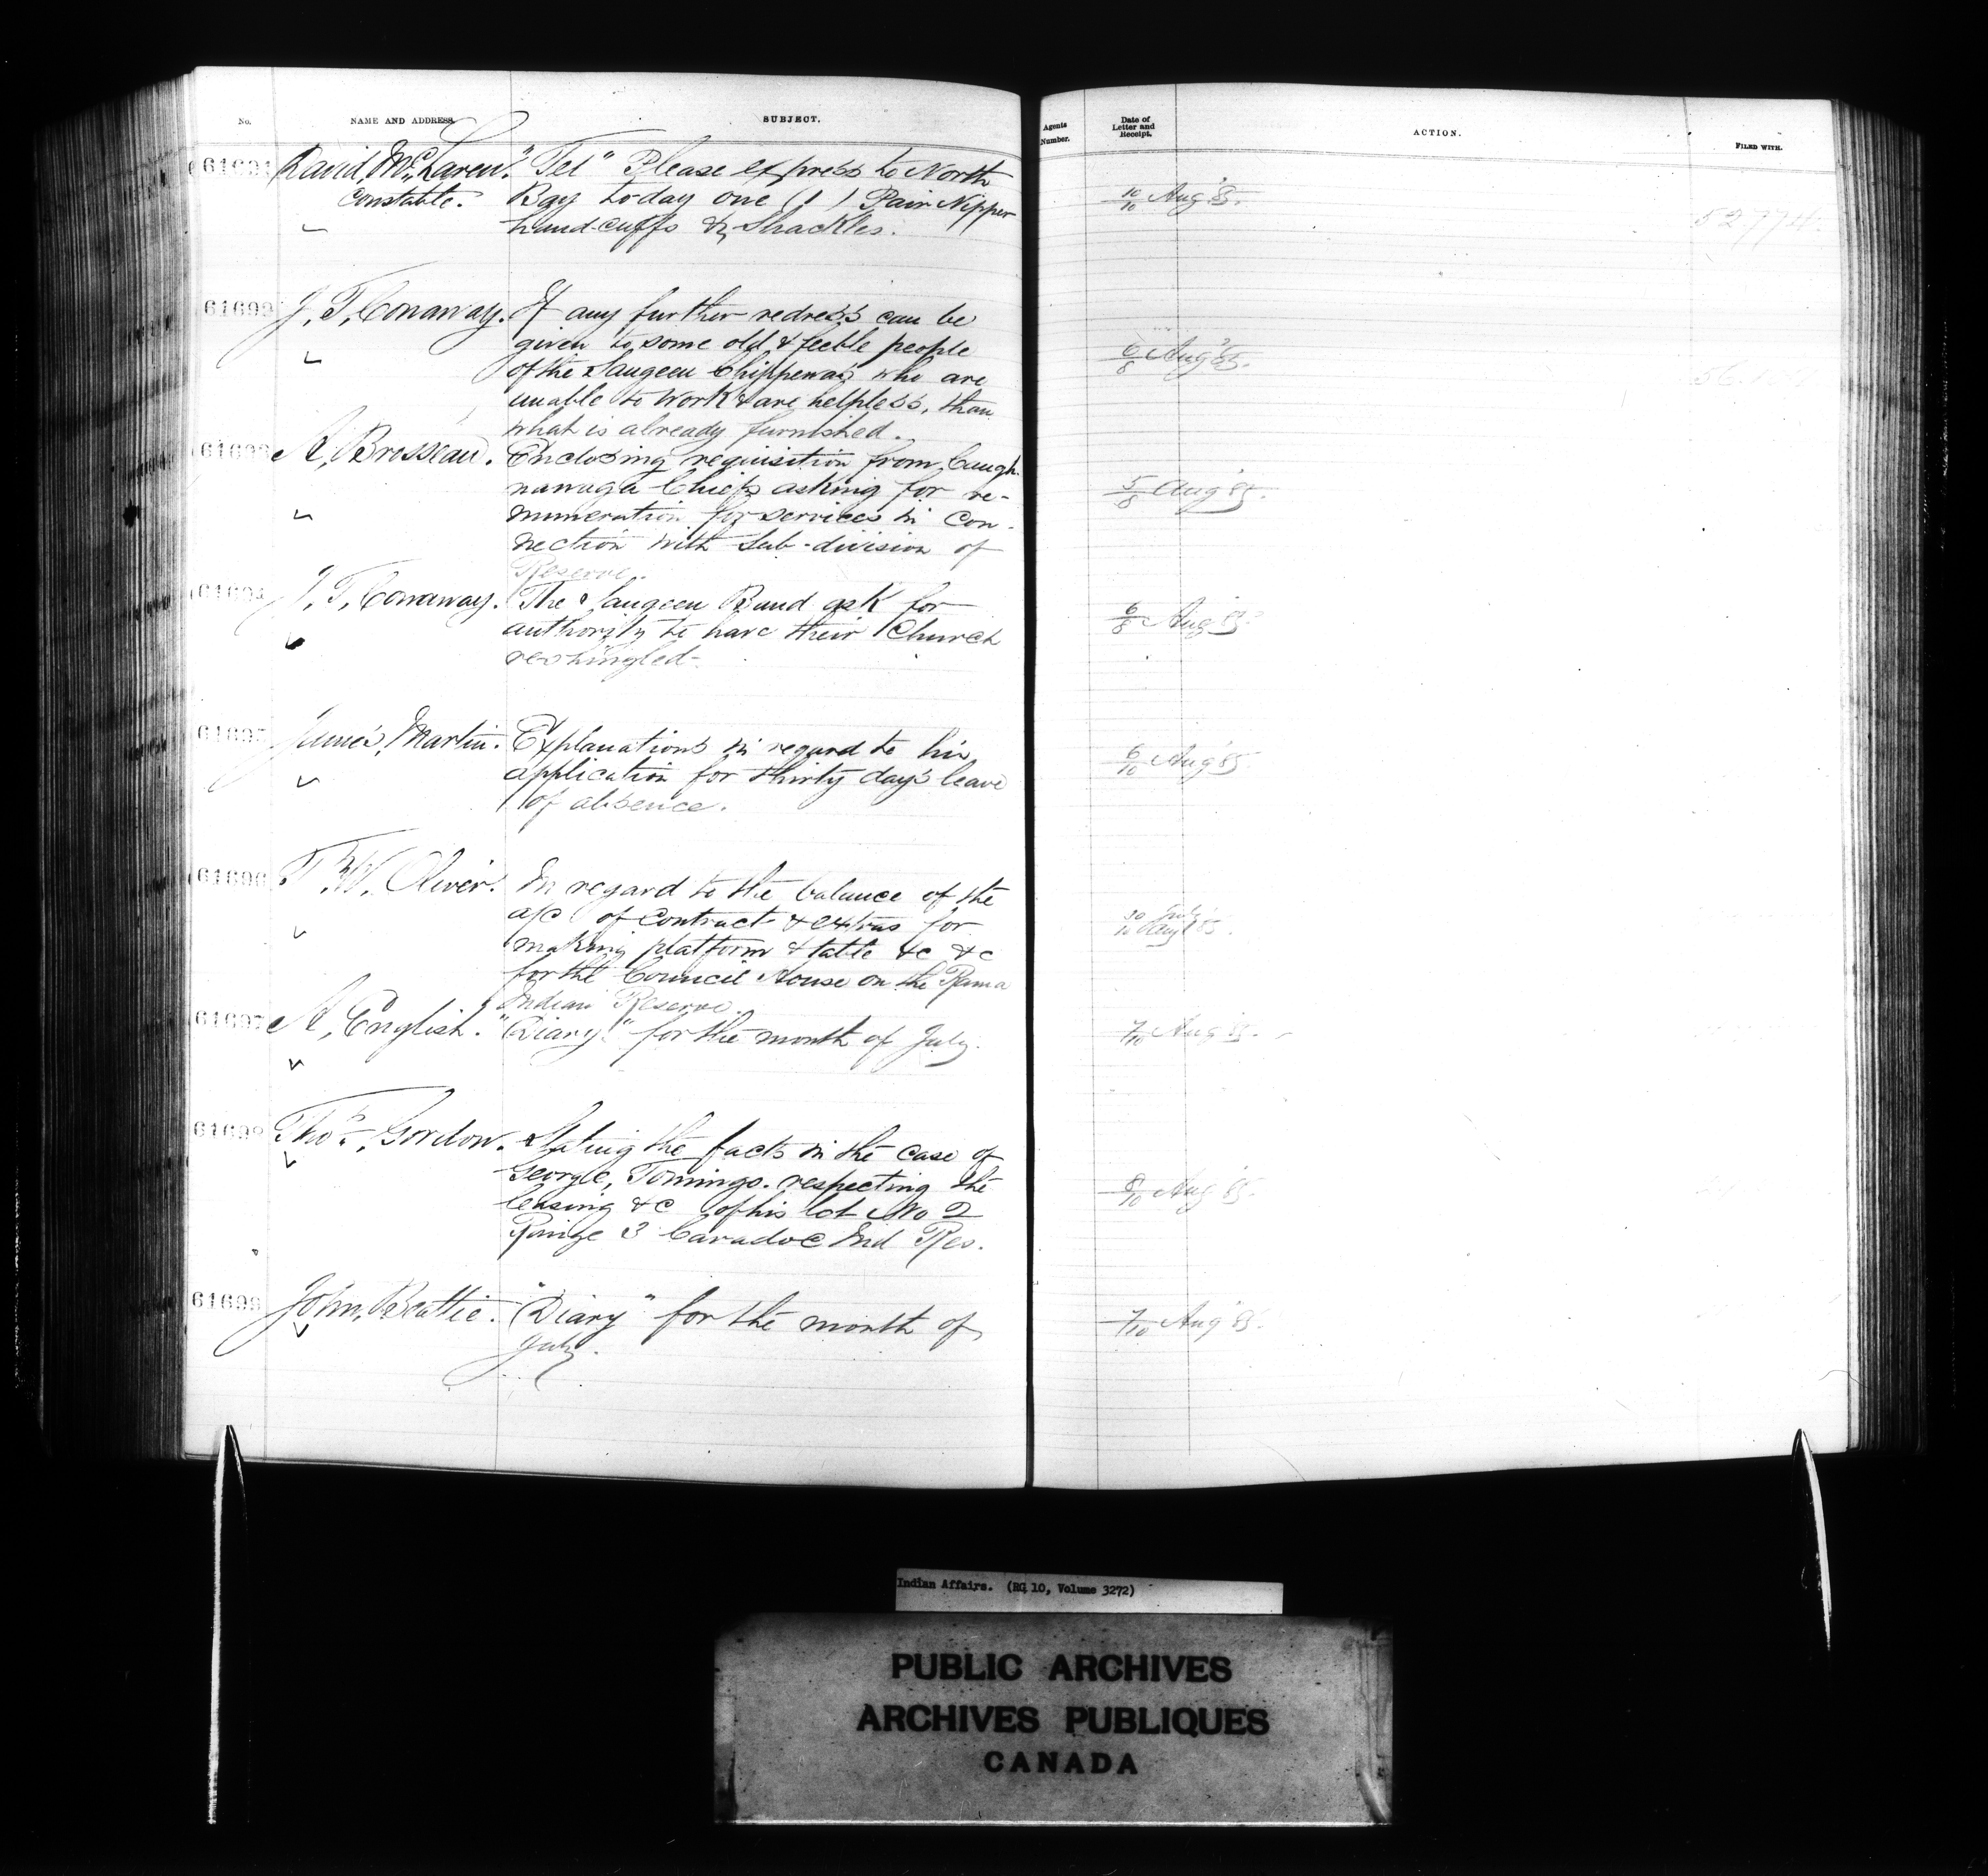 No. NAME AND ADDRESS. SUBJECT.
61691 David, McLaren. "Tel" Please express to North
Constable. Bay to-day one (1) Pair Nipper
hand-cuffs & Shackles.
61692 J, T, Conaway. If any further redress can be
given to some old & feeble people
of the Saugeen Chippewas who are
unable to work & are helpless, than
what is already furnished.
61693 A, Brosseau. Enclosing requisition from Caugh-
nawaga Chiefs asking for re-
muneration for services in con-
nection with Sub-division of
Reserve.
61694 J, T, Conaway. The Saugeen Band ask for
authority to have their Church
reshingled.
61695 James, Martin. Explanations in regard to his
application for thirty days leave
of absence.
61696 T, W, Oliver. In regard to the balance of the
a/c of contract & extras for
making platform & table &c &c
for the Council House on the Rama
Indian Reserve.
61697 A, English. "Diary" for the month of July.
61698 Thos, Gordon. Stating the facts in the case of
George, Tomingo. respecting the
leasing &c of his lot No 2
Range 3 Caradoc Ind Res.
61699 John, Beattie. "Diary" for the month of
July.
Agents Number. Date of Letter and Receipt. ACTION. FILED WITH.
10/10 Aug '85. 52774.
6/8 Aug '85.
5/8 Aug '85.
6/8 Aug 85.
6/10 Aug '85.
30 July
10 Aug 85.
7/10 Aug '85.
8/10 Aug 85.
7/10 Aug '85.
Indian Affairs. (RG 10, Volume 3272)
PUBLIC ARCHIVES
ARCHIVES PUBLIQUES
CANADA